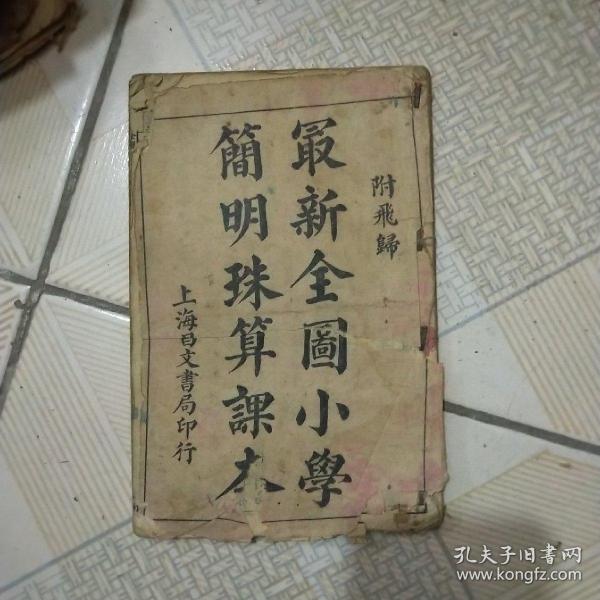 附飛歸
最新全圖小學
簡明珠算課本
上海昌文書局印行
孔夫子旧書网
www.kongfz.com